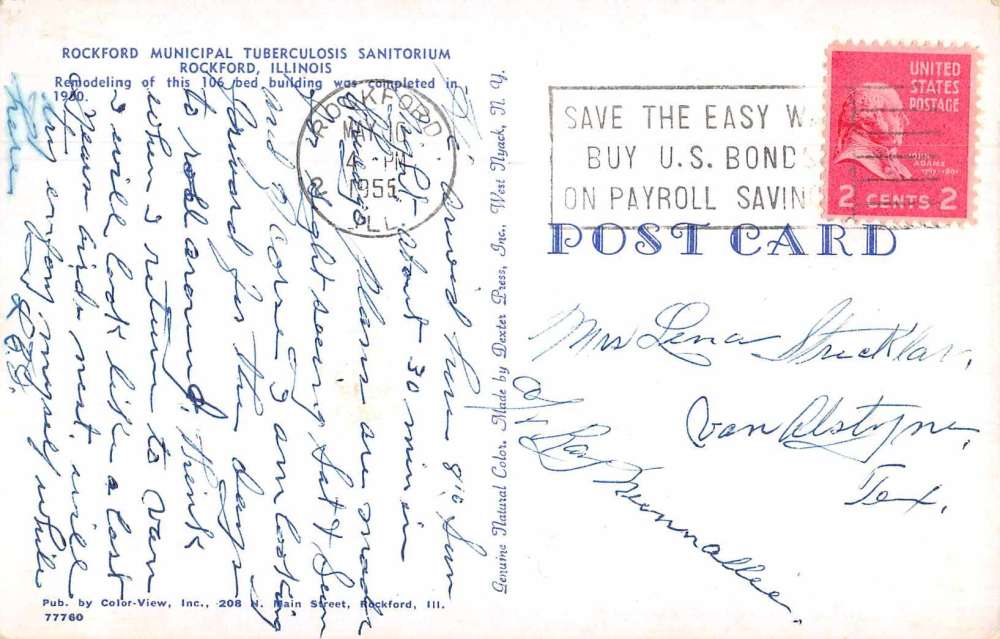 ROCKFORD MUNICIPAL TUBERCULOSIS SANITORIUM
ROCKFORD, ILLINOIS
Remodeling of this 106 bed building was completed in
1950.
ROCKFORD
4 PM
1955
ILL.
2
SAVE THE EASY W
BUY U.S. BONDS
ON PAYROLL SAVIN
UNITED
STATES
POSTAGE
JOHN
ADAMS
1797-1801
2 CENTS 2
POST CARD
Genuine Natural Color. Made by Dexter Press, Inc., West Nyack, N. Y.
Mrs Lena
Van Alstyne,
Tex.
c/o Ray
Hi, Arrived here 8:10 Sun
Night. About 30 min in
Chicago. Plans are made
for sight seeing Sat & Sun
and of corse I am looking
forward for the days
to roll around.
when I return to Van
I will look like a lost
in a birds nest. will
try enjoy myself while
here
Pub. by Color-View, Inc., 208 N. Main Street, Rockford, Ill.
77760